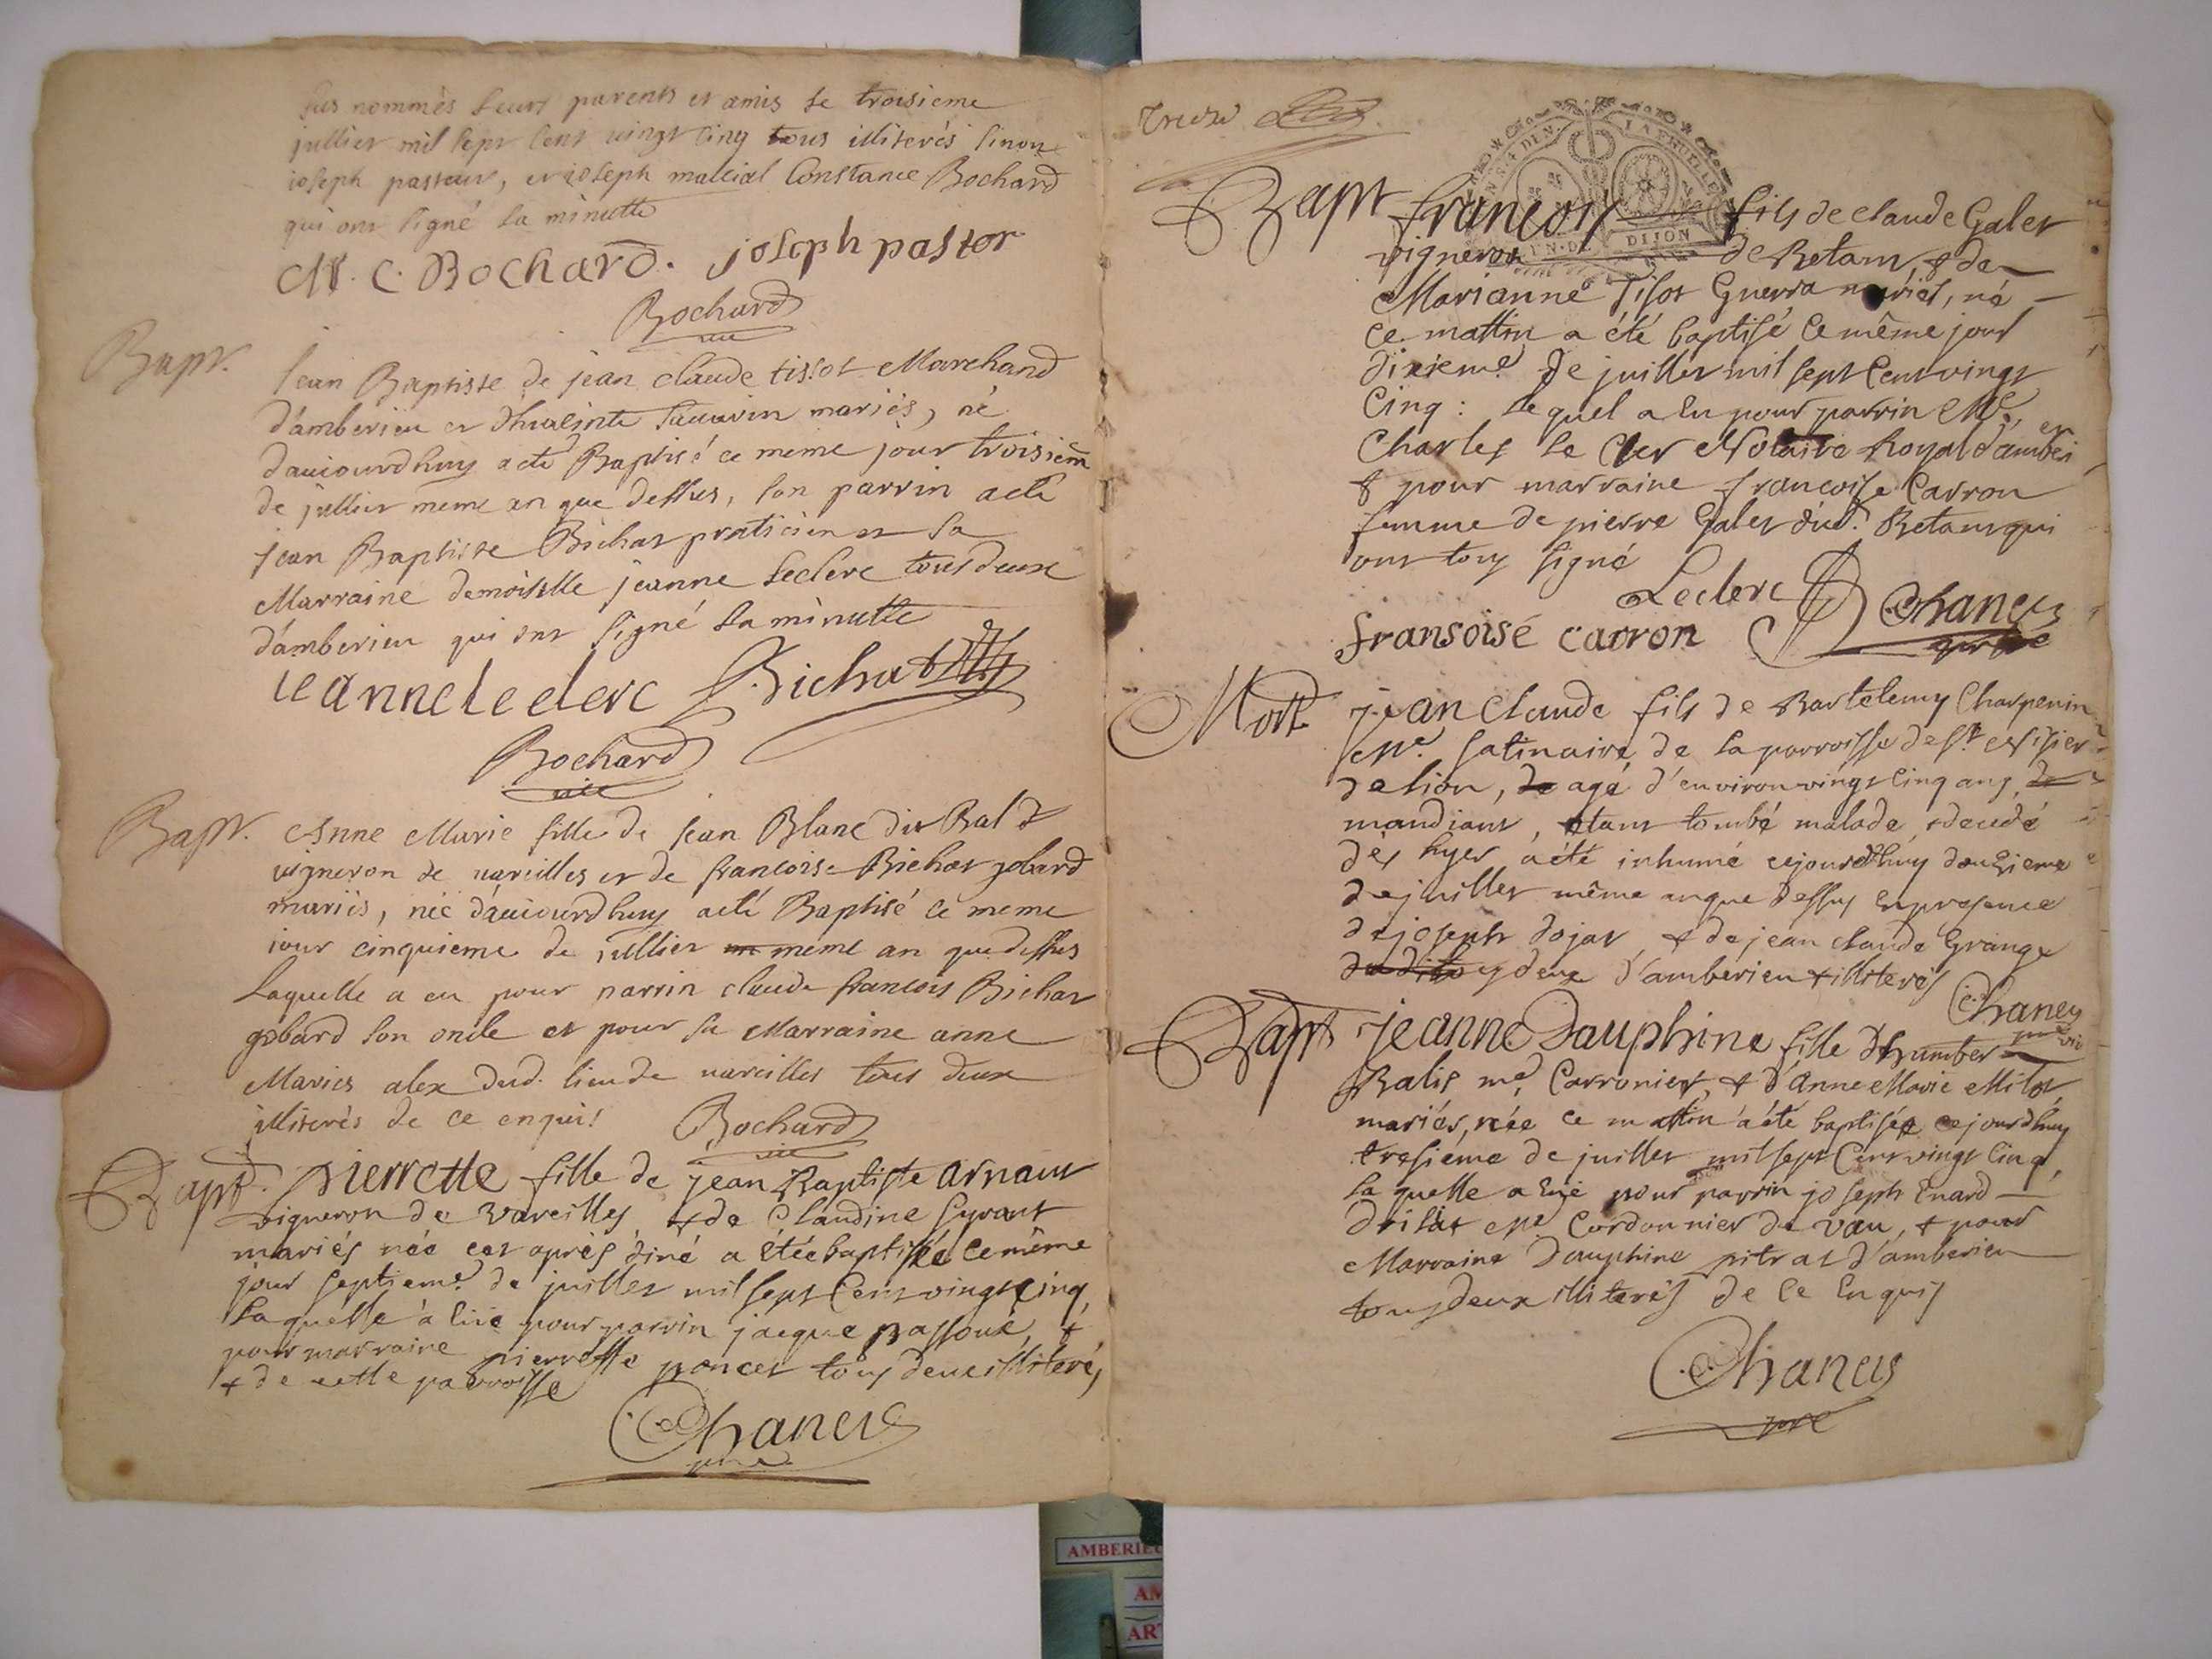 sus nommès leurs parents et amis le troisieme
jullier mil sept cent vingt cinq tous illiterés sinon
ioseph pasteur, et ioseph malcial Constance Bochard
qui ont signé la minutte
M. C. Bochard. joseph pastor
Bochard
vic
Bapt. Jean Baptiste de jean claude tissot Marchand
d'amberieu et sauvin mariés, né
d'auiourdhuy a eté Baptisé ce meme jour troisiem
de jullier meme an que dessus, son parrin a eté
jean Baptiste Bichat praticien et la
Marraine demoiselle jeanne Leclerc tous deux
d'amberieu qui ont signé la minutte
ieanne le clerc Bichat
Bochard
vic
Bapt. Anne Marie fille de jean Blanc dit Bal
vigneron de vareilles et de francoise Bichat gobard
mariés, née d'auiourdhuy a eté Baptisé ce meme
iour cinquieme de jullier meme an que dessus
Laquelle a eu pour parrin claude francois Bichat
gobard son oncle et pour sa Marraine anne
Maries alex dud. lieu de vareilles tous deux
illiterés de ce enquis!
Bochard
vic
Bapt. pierrette fille de jean Baptiste arnaut
vigneron de vareilles & de Claudine
mariés née cet après diné a étée baptisée le même
jour septieme de juillet mil sept Cent vingt cinq,
laquelle à eue pour parrin jacque passoué, &
pour marraine pierrette poncet tous deux illiterés
& de cette parroisse
Chaney
Treize
Bapt francois fils de claude Galet
vigneron de Betant, & de
Marianne Tisot Guerra mariés, né
ce mattin a été baptisé le même jour
dixieme de juillet mil sept Cent vingt
Cinq: lequel a eu pour parrin Me.
Charles le Cler Notaire Royal d'amberi
& pour marraine francoise Carron
femme de pierre Galet dud. Betant qui
ont tous signé
Leclerc
fransoisé carron Chaney
Mort jean Claude fils de Bartelemy Charpenin
Me. satinaire de la parroisse de St. Nisier
de lion, de agé d'environ vingt cinq ans, de
mandiant, etant tombé malade, & decédé
dès hyer a été inhumé cejourdhuy douzieme
de juillet même an que dessus en presence
de joseph dojat & de jean claude Grange
tous deux d'amberieu & illiterés
Chaney
Bapt jeanne Dauphine fille d'humber
Balif me. Carronier, & d'Anne Marie Milot
mariés, née ce mattin a été baptisée cejourdhuy
tresieme de juillet mil sept Cent vingt cinq
laquelle a eue pour parrin joseph
Me Cordonnier de vau, & pour
Marraine Dauphine pitrat d'amberieu
tous deux illiterés de ce enquis
Chaney
DIJON
AMBERIEU
AM
ART